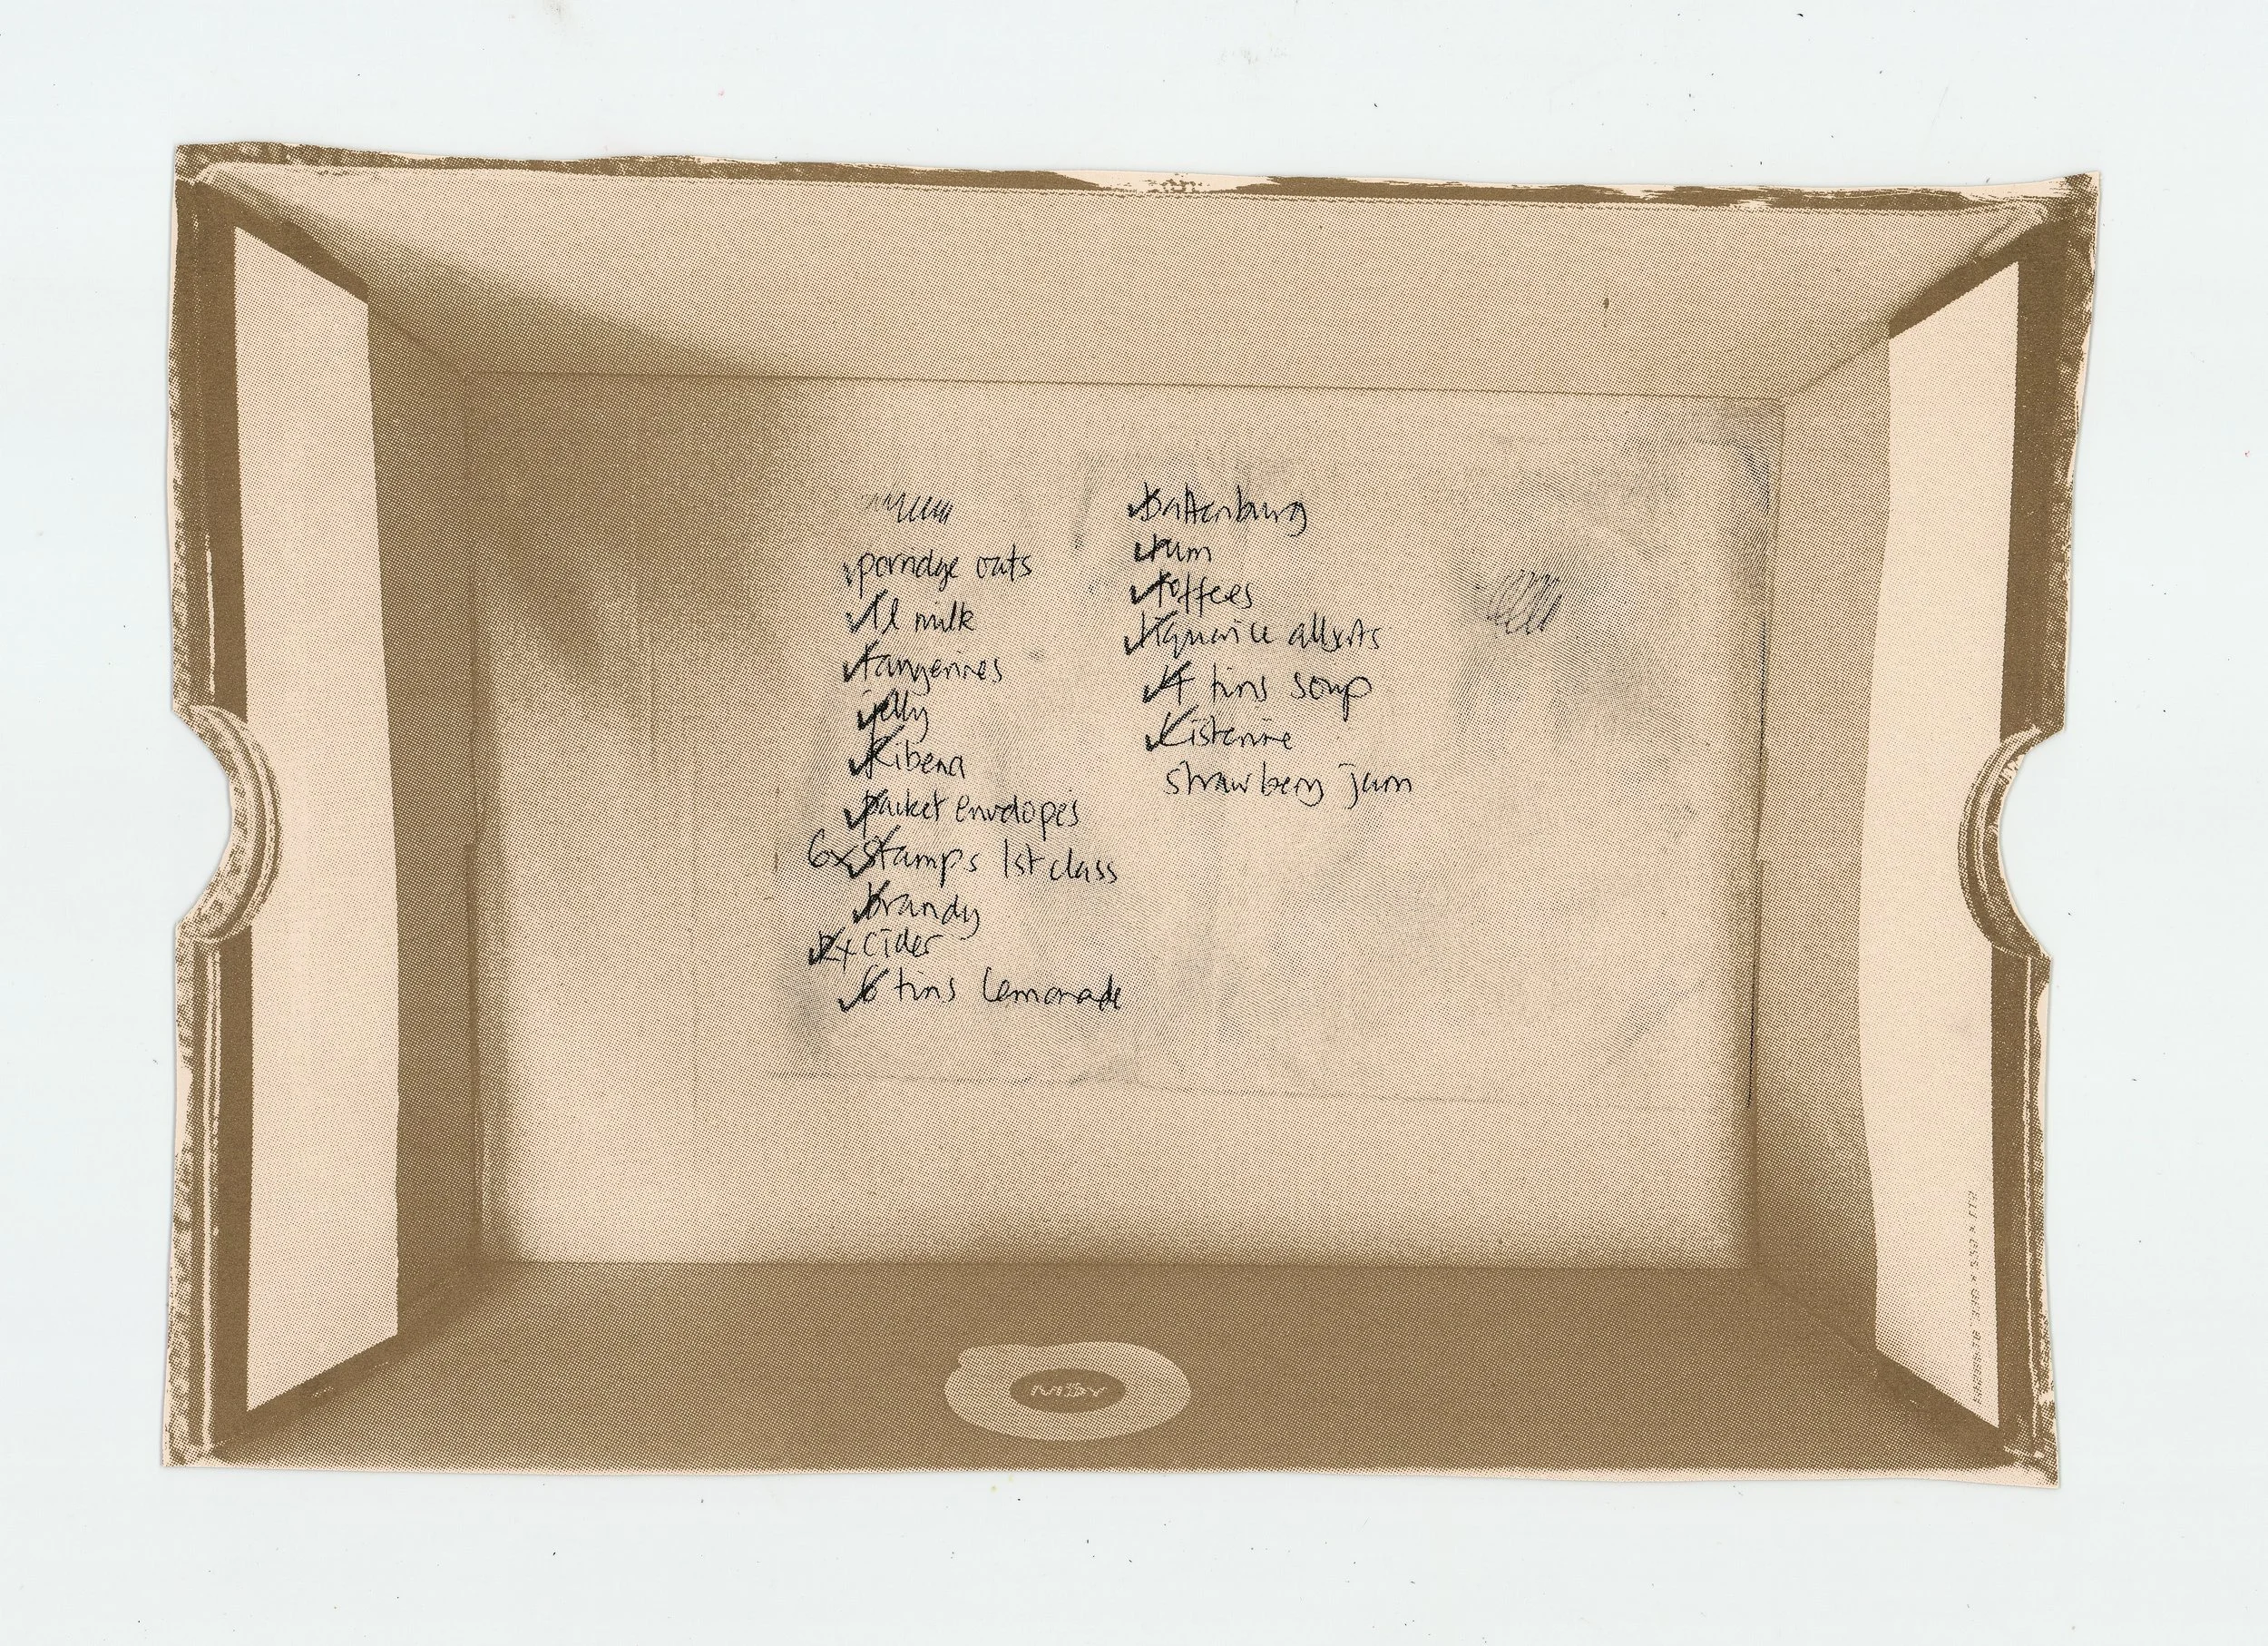 porridge oats
1l milk
tangerines
jelly
Ribena
packet envelopes
6x stamps 1st class
brandy
2x cider
6 tins lemonade
battenburg
rum
toffees
liquorice allsorts
4 tins soup
Listerine
strawbery jam